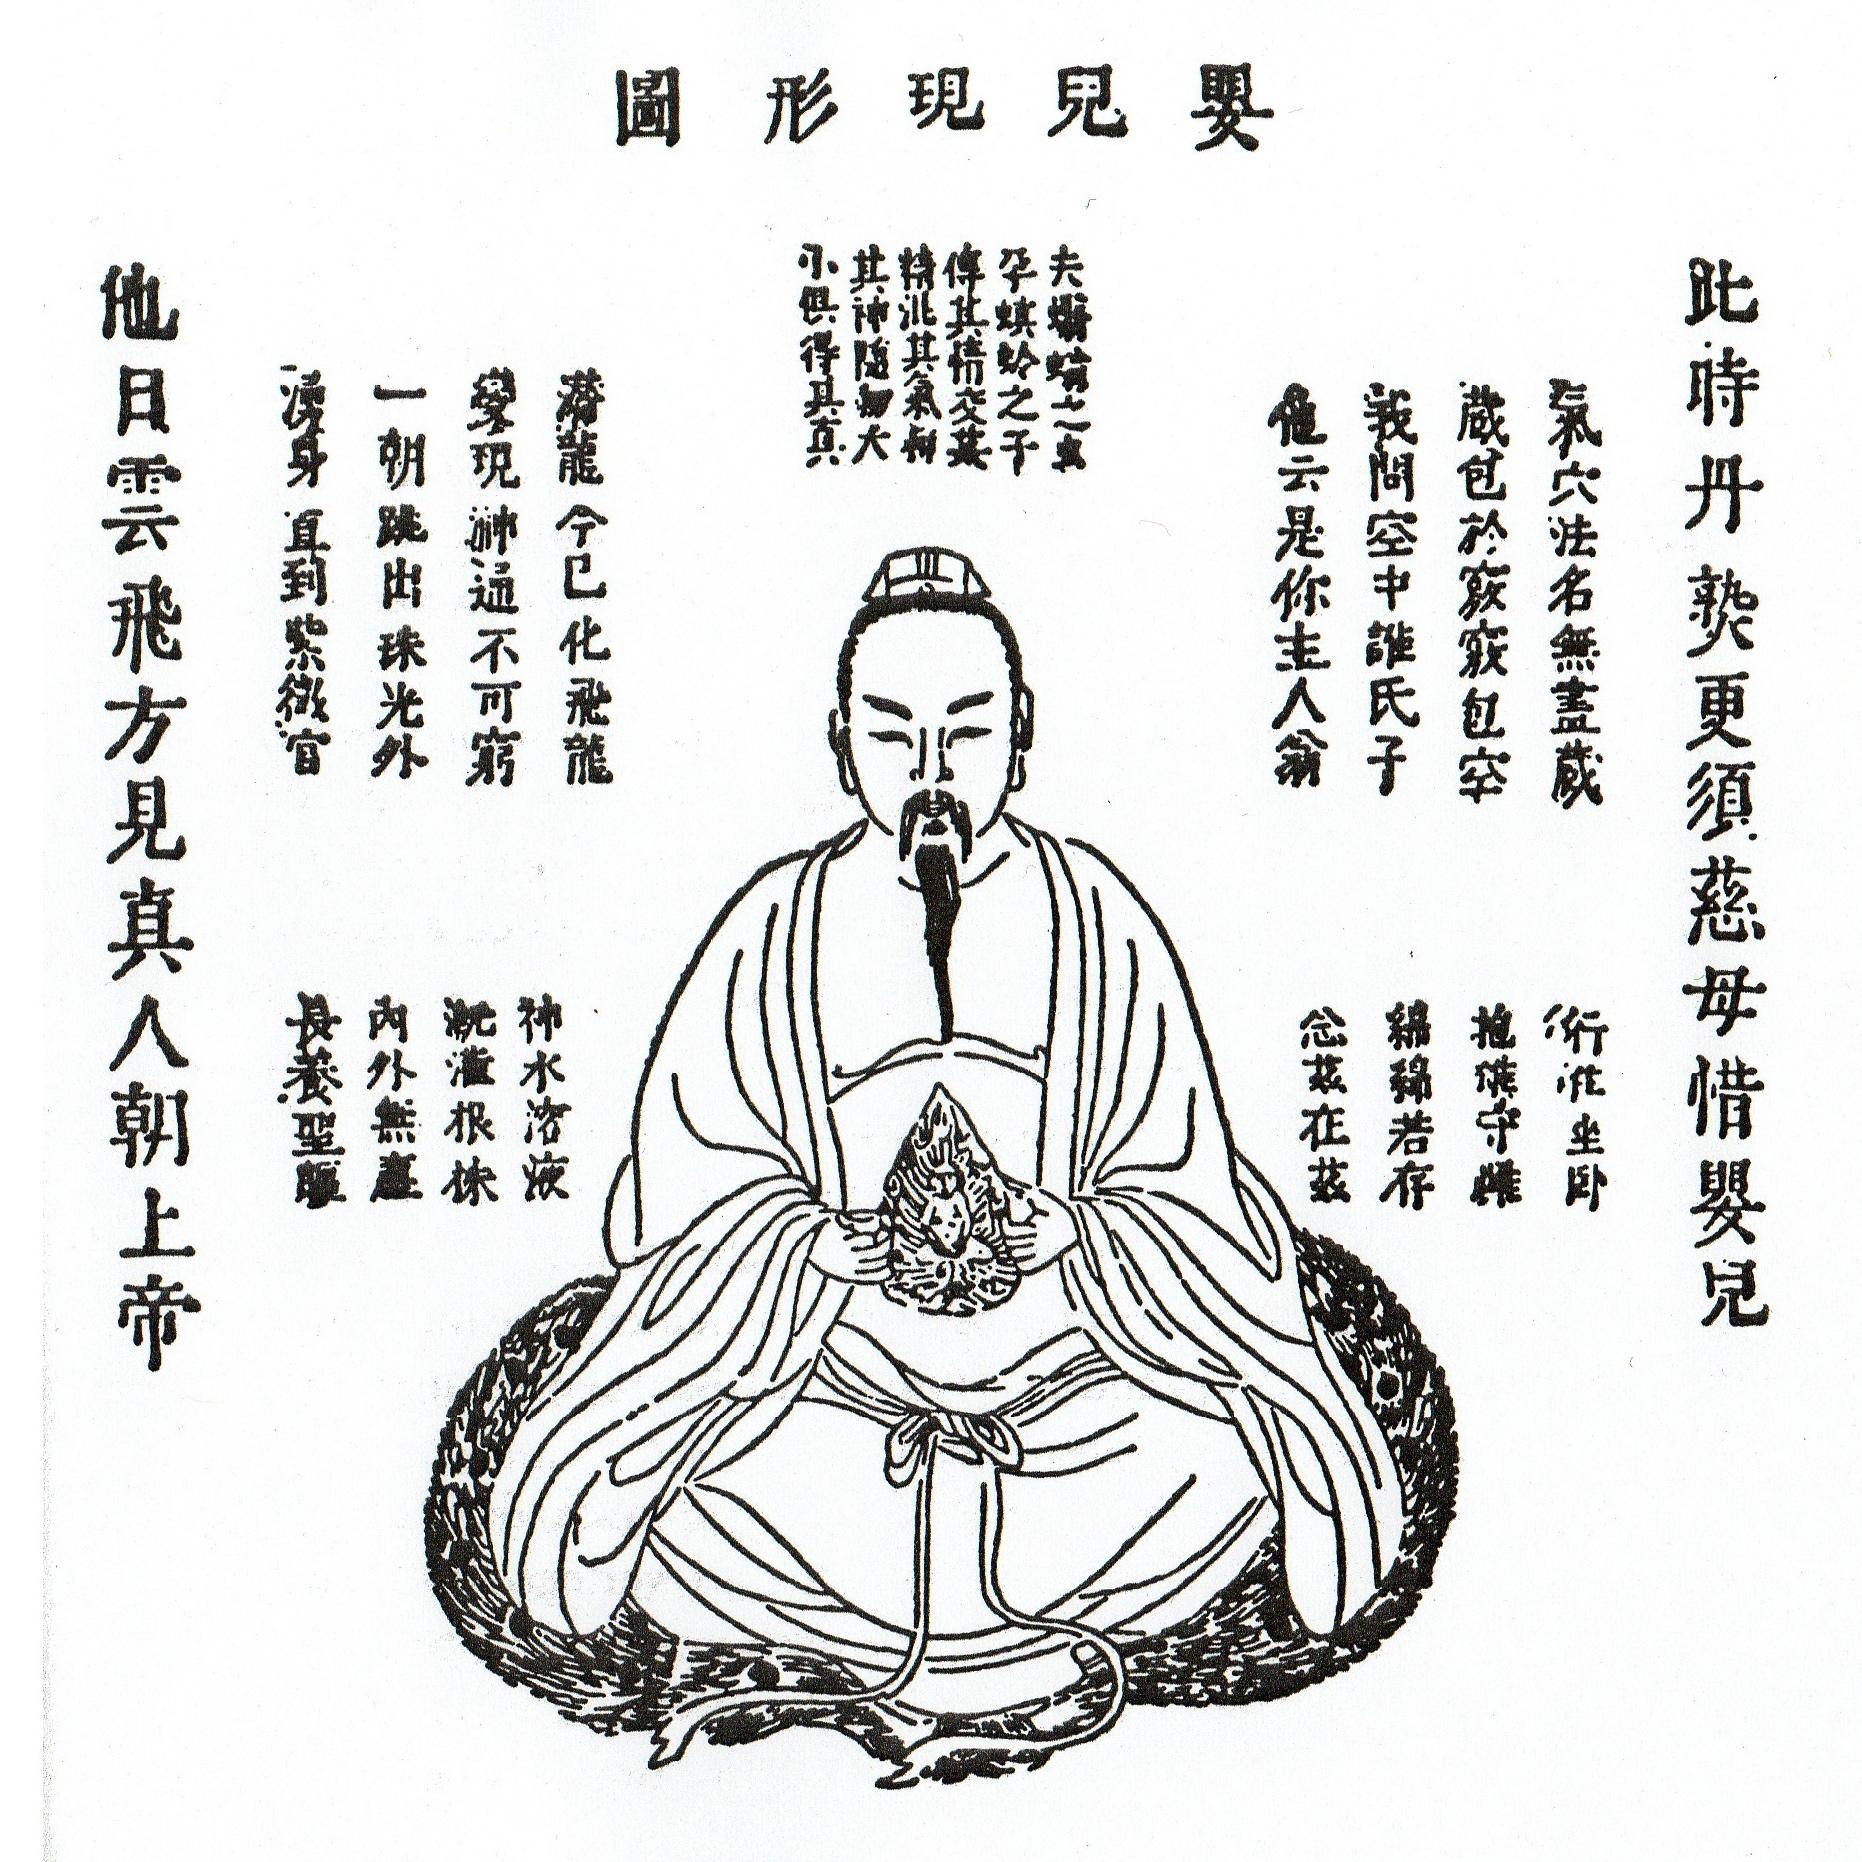 嬰兒現形圖
此時丹熟更須慈母惜嬰兒
氣穴法名無盡藏
藏包於竅竅包空
我問空中誰氏子
他云是你主人翁
行住坐卧
抱雄守雌
綿綿若存
念茲在茲
夫蠮螉之蟲
孕螟蛉之子
傳其情交其
精混其氣和
其神隨物大
小俱得其真
潛龍今已化飛龍
變現神通不可窮
一朝跳出珠光外
湧身直到紫微宮
神水溶液
溉灌根株
內外無塵
長養聖軀
他日雲飛方見真人朝上帝